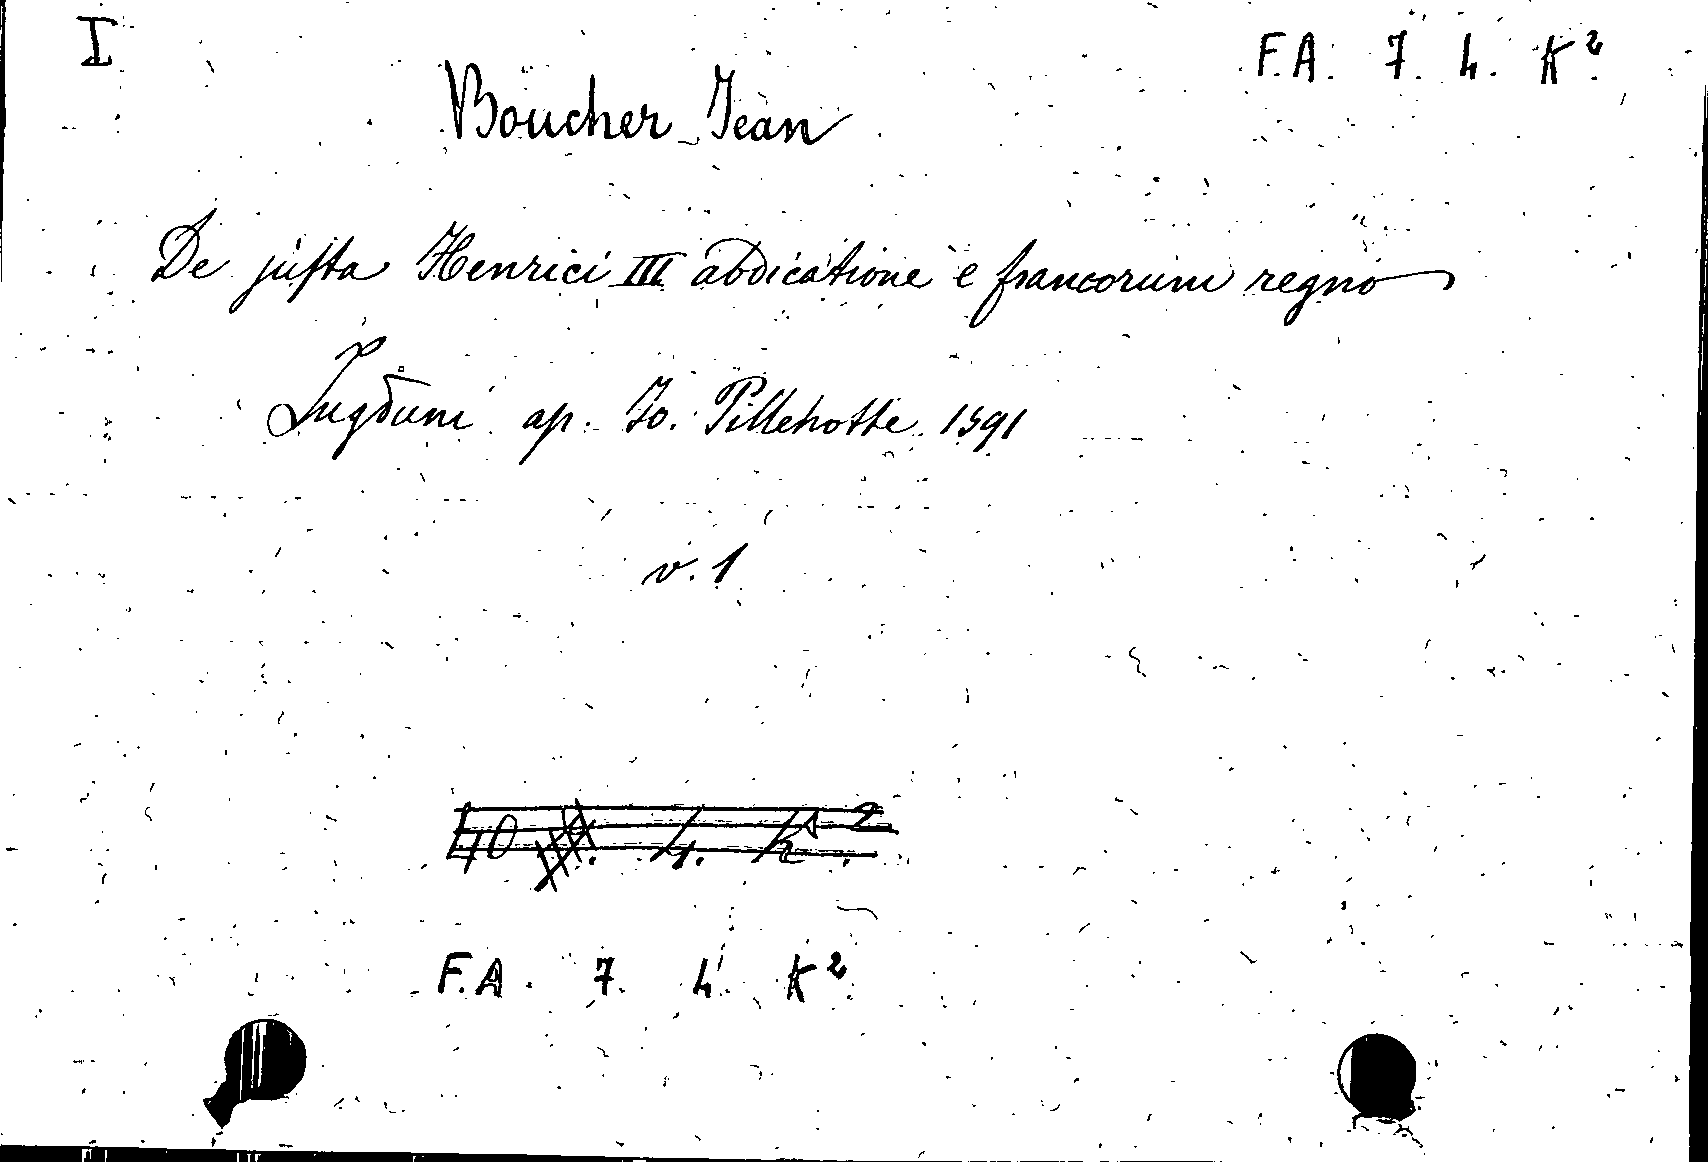 I
F.A. 7. 4. K².
Boucher Jean
De justa Henrici III abdicatione e francorum regno
Lugduni ap. Jo. Pillehotte 1591
v. 1
40 4. K²
F.A. 7. 4. K².